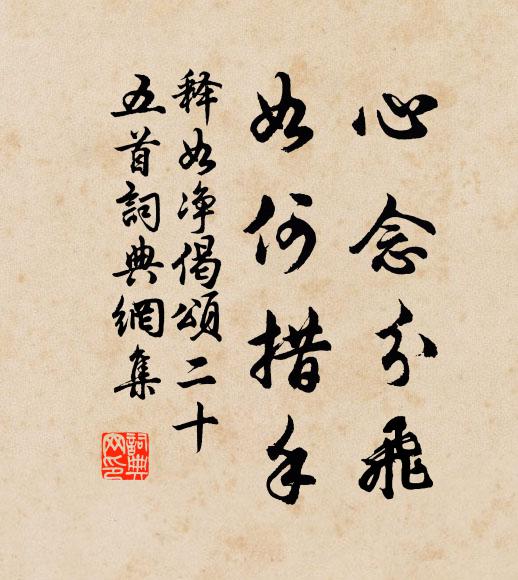 心念分飛
如何措手
释如净偈頌二十
五首詞典網集
詞典
网印